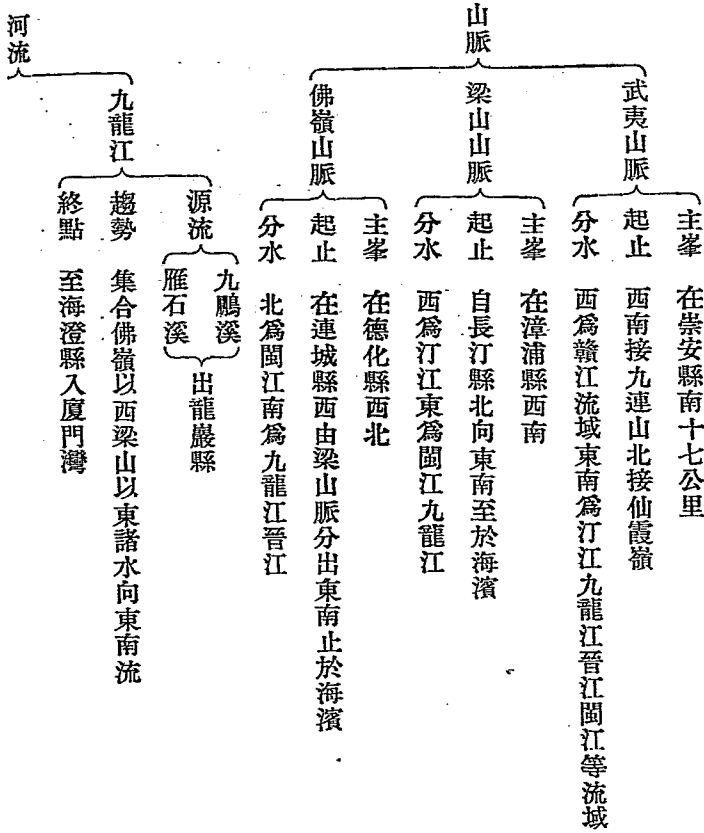 山脈
武夷山脈
主峯　在崇安縣南十七公里
起止　西南接九連山北接仙霞嶺
分水　西爲贛江流域東南爲汀江九龍江晉江閩江等流域
梁山山脈
主峯　在漳浦縣西南
起止　自長汀縣北向東南至於海濱
分水　西爲汀江東爲閩江九龍江
佛嶺山脈
主峯　在德化縣西北
起止　在連城縣西由梁山脈分出東南止於海濱
分水　北爲閩江南爲九龍江晉江
河流
九龍江
源流
九鵬溪
雁石溪
出龍巖縣
趨勢　集合佛嶺以西梁山以東諸水向東南流
終點　至海澄縣入廈門灣